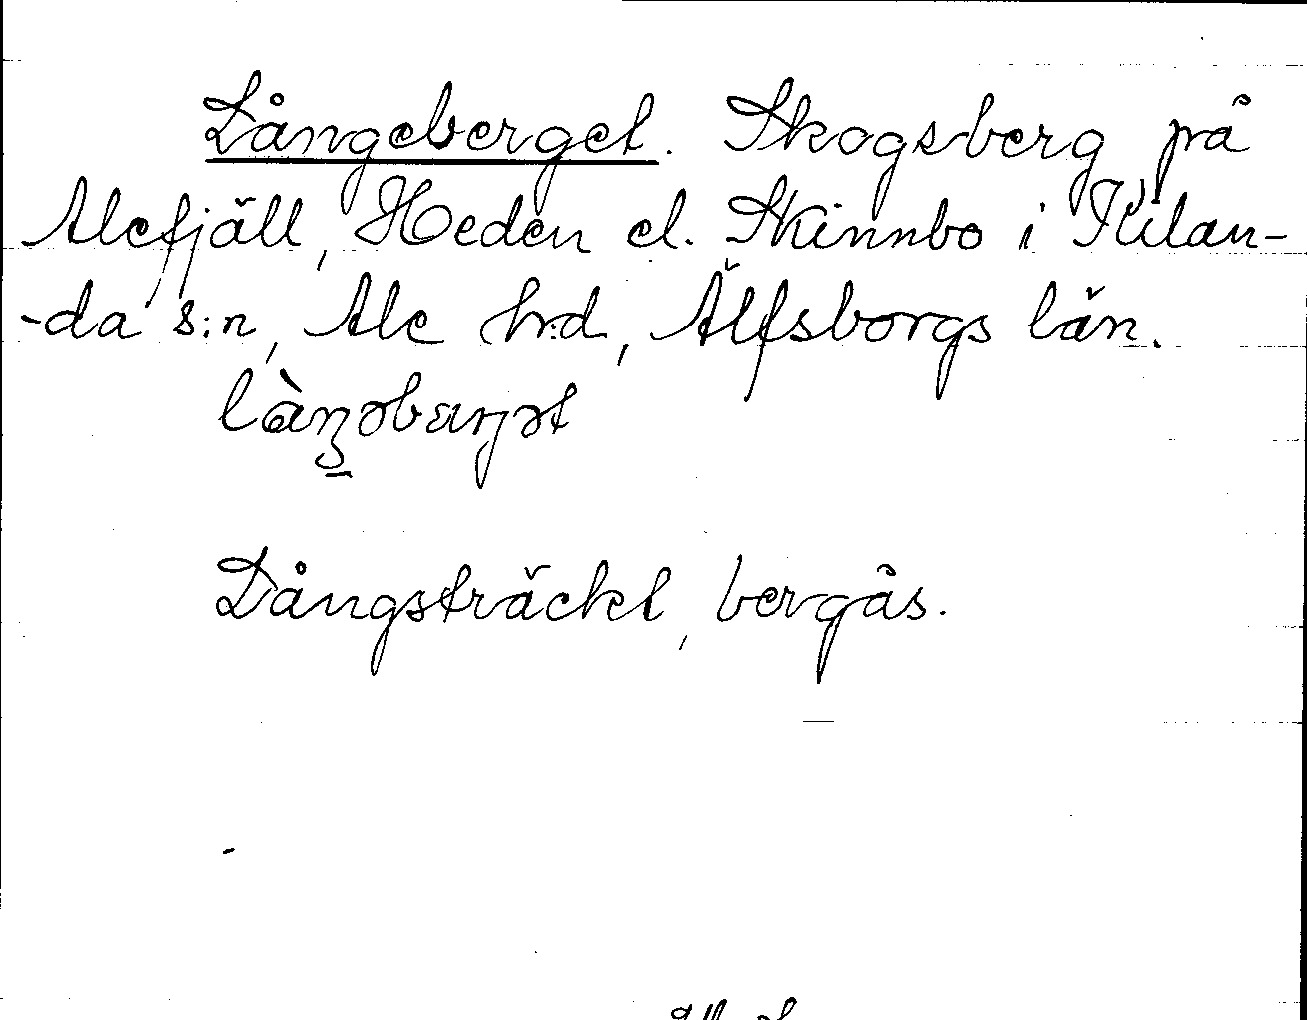 Långeberget. Skogsberg på
Alefjäll, Heden el. Skinnbo i Kilan-
-da s:n, Ale h:d, Älfsborgs län.
Långsträckt, bergås.